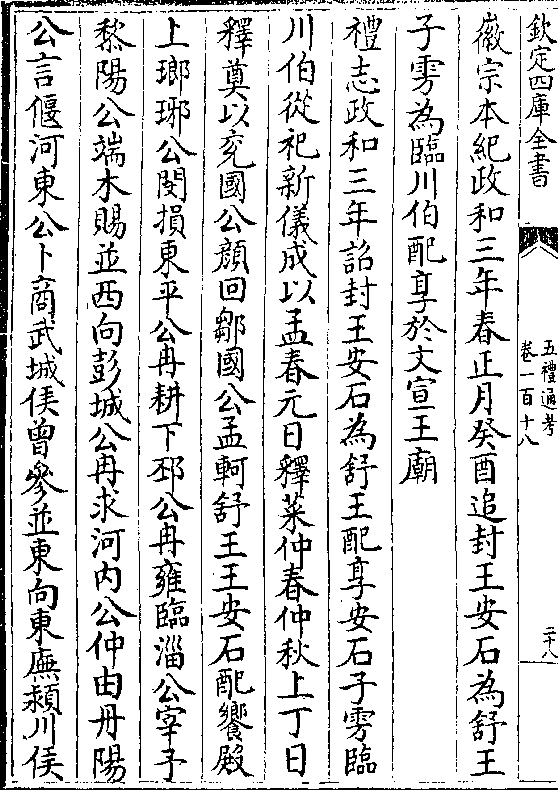 欽定四庫全書
五禮通考
卷一百十八
二十八
徽宗本紀政和三年春正月癸酉追封王安石為舒王
子雱為臨川伯配享於文宣王廟
禮志政和三年詔封王安石為舒王配享安石子雱臨
川伯從祀新儀成以孟春元日釋菜仲春仲秋上丁日
釋奠以兖國公顏回鄒國公孟軻舒王王安石配饗殿
上瑯琊公閔損東平公冉耕下邳公冉雍臨淄公宰予
黎陽公端木賜並西向彭城公冉求河内公仲由丹陽
公言偃河東公卜商武城侯曾參並東向東廡潁川侯